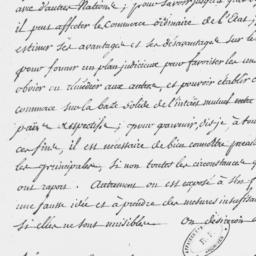 avec d'autres Nations ; pour savoir jusqu'à
il peut affecter le Commerce ordinaire de l'Etat ;
estimer ses avantages et ses désavantages sur le
pour former un plan judicieux pour favoriser les un
obvier ou rémédier aux autres, et pouvoir établir c
commerce sur la base solide de l'intérêt mutuel entre
païs respectifs ; pour parvenir, dis-je à tou
ces fins, il est nécessaire de bien connoître preala
les principales, si non toutes les circonstances q
ont raport. Autrement on est exposé à s'en f
une fausse idée et à prendre des mesures insuffisa
si elles ne sont nuisibles. On désireroit